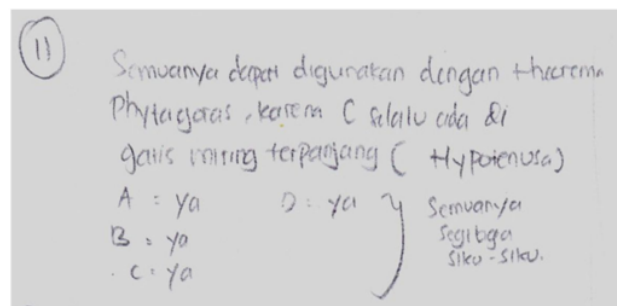 11
Semuanya dapat digunakan dengan theorema
Phytagoras, karena C selalu ada di
garis miring terpanjang ( Hypotenusa)
A : ya D : ya Semuanya
B : ya segitiga
C : ya siku-siku.